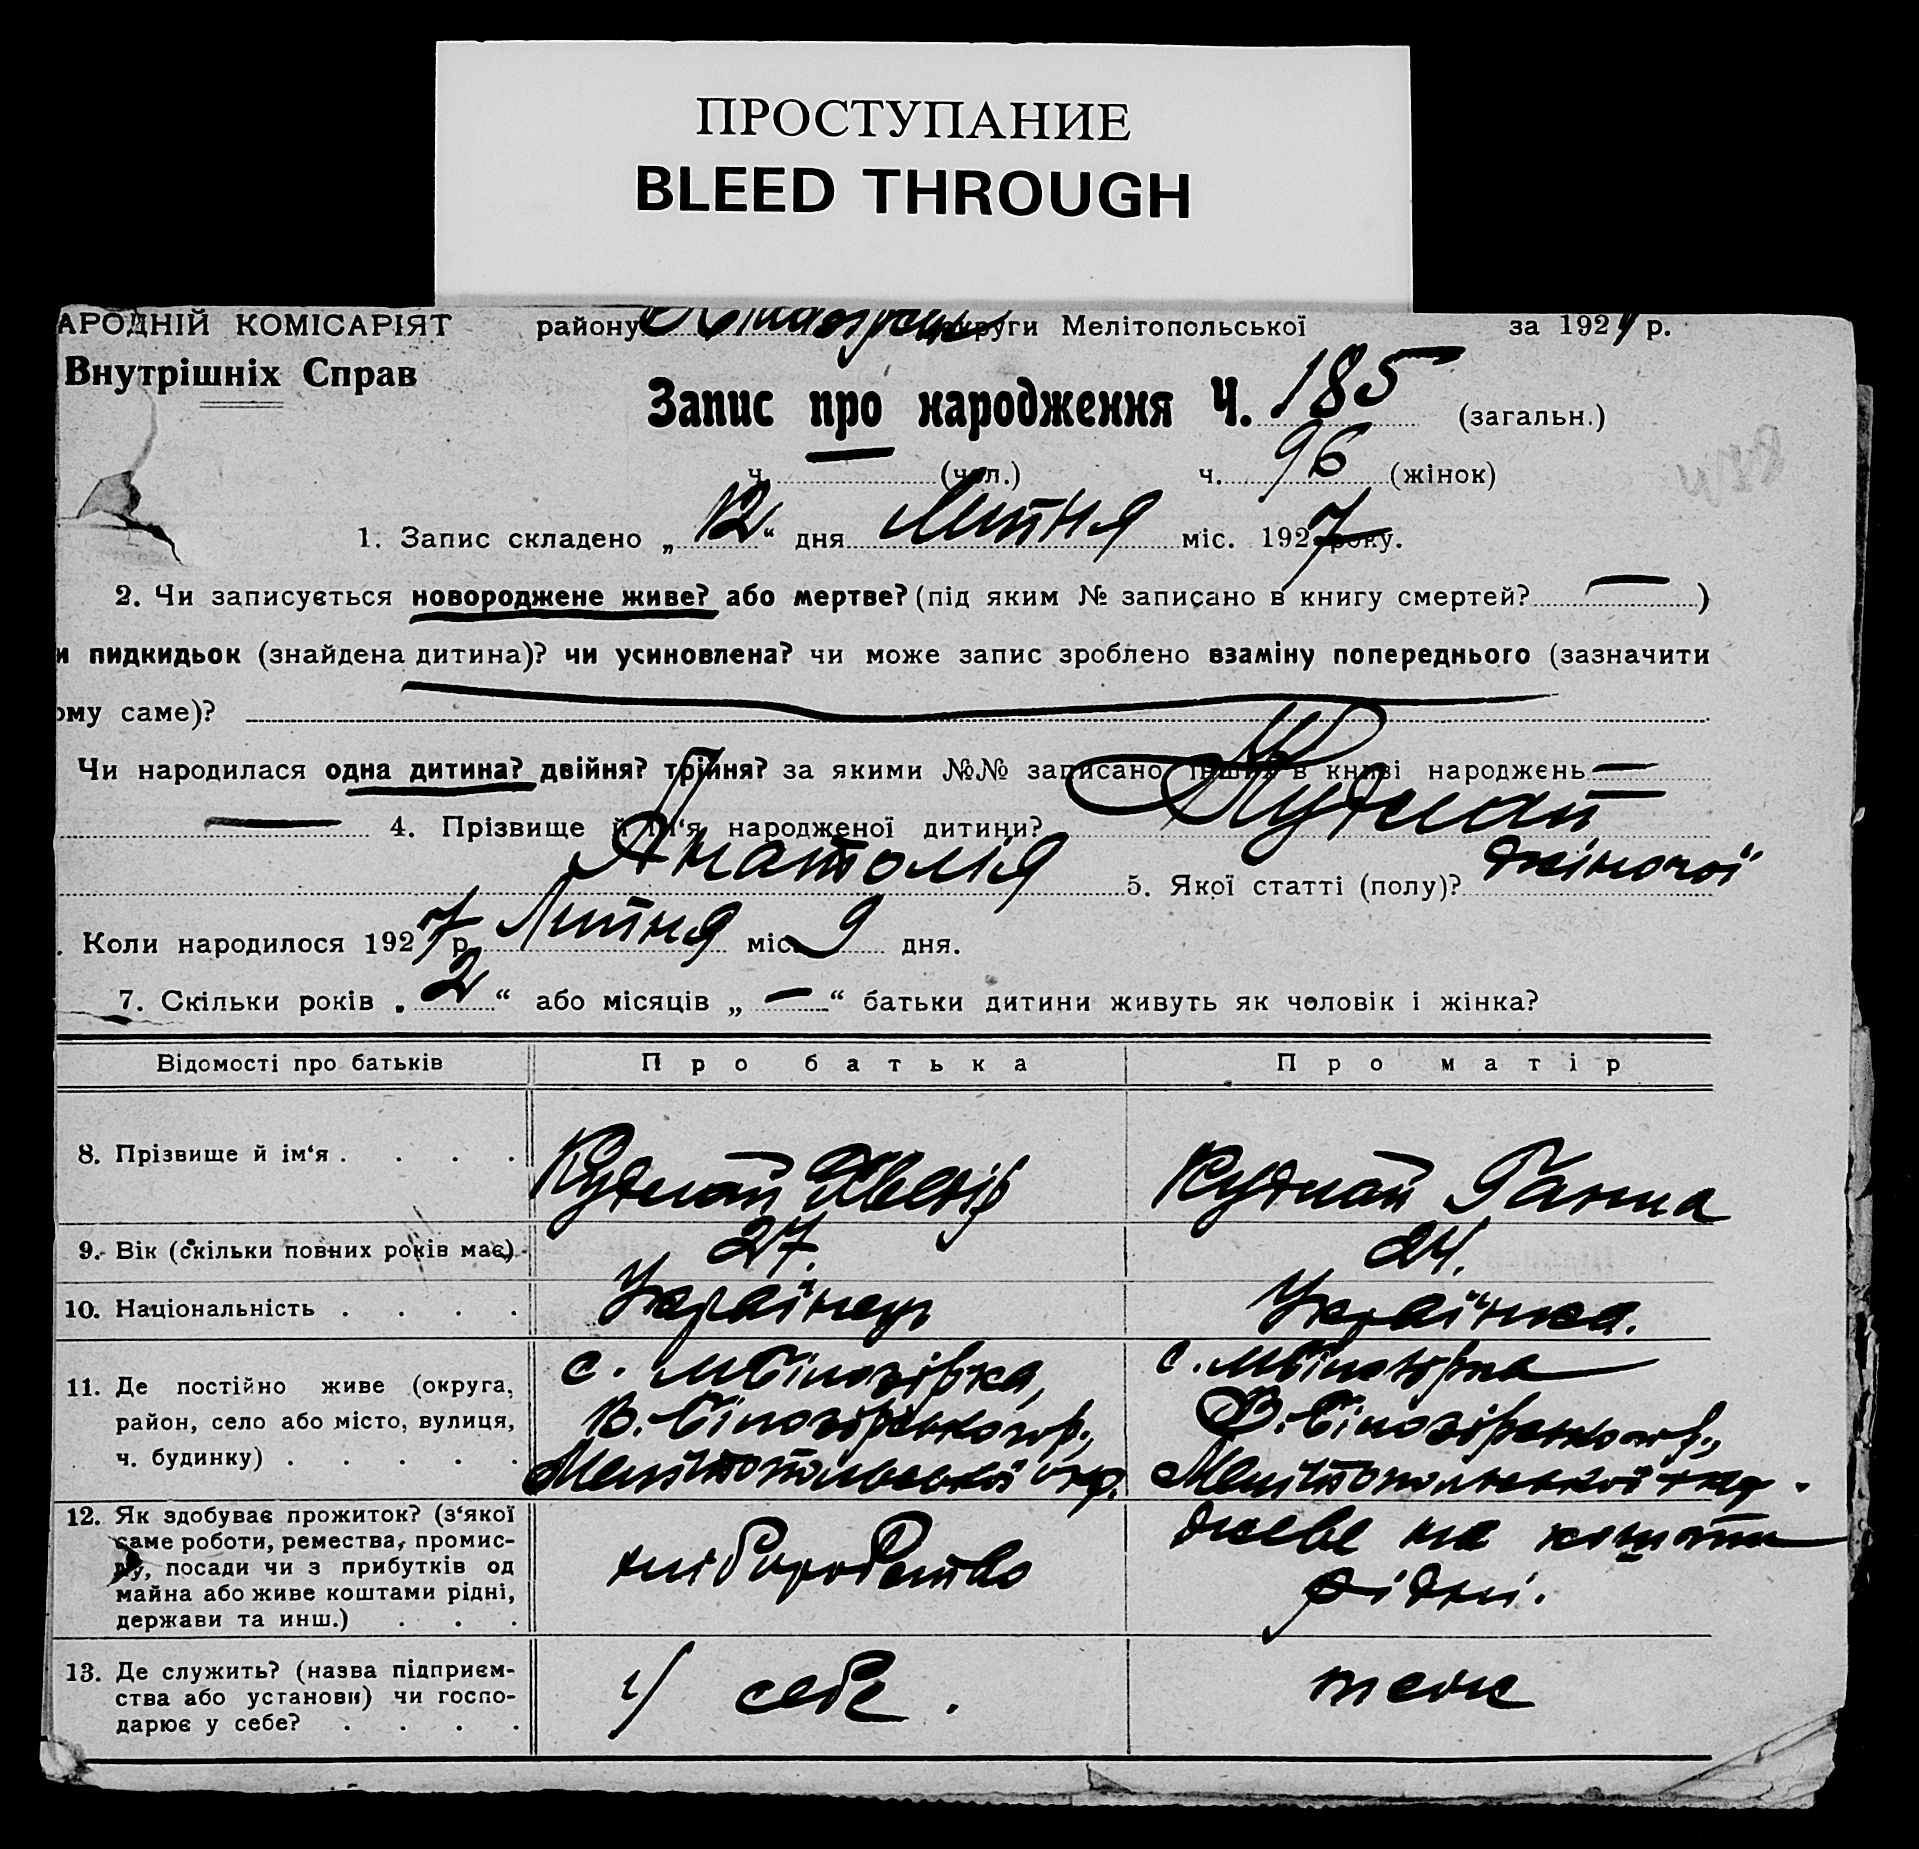 ПРОСТУПАНИЕ
BLEED THROUGH
АРОДНІЙ КОМІСАРІЯТ району округи Мелітопольської за 1927 р.
Внутрішніх Справ
Запис про народження Ч. 185 (загальн.)
ч. — (чол.) ч. 96 (жінок)
1. Запис складено „12“ дня Липня міс. 1927 року.
2. Чи записується новороджене живе? або мертве? (під яким № записано в книгу смертей? — )
и пидкидьок (знайдена дитина)? чи усиновлена? чи може запис зроблено взаміну попереднього (зазначити
ому саме)?
Чи народилася одна дитина? двійня? трійня? за якими №№ записано інших в книзі народжень —
— 4. Прізвище й ім‘я народженої дитини?
Анатолія 5. Якої статті (полу)? жіночої
. Коли народилося 1927 р. Липня міс. 9 дня.
7. Скільки років „2“ або місяців „—“ батьки дитини живуть як чоловік і жінка?
Відомості про батьків Про батька Про матір
8. Прізвище й ім‘я . . . . Ганна
9. Вік (скільки повних років має) 27. 24.
10. Національність . . . . Українець Українка.
11. Де постійно живе (округа, с. М Білозірка, с. М Білозірка
район, село або місто, вулиця, В. Білозірського р., В. Білозірського р.,
ч. будинку) . . . . . Мелітопольської окр. Мелітопольської окр.
12. Як здобуває прожиток? (з‘якої
саме роботи, ремества, промис-
лу, посади чи з прибутків од
майна або живе коштами рідні,
держави та инш.) . . . хліборобство живе на кошти рідні.
13. Де служить? (назва підприєм-
ства або установи) чи госпо-
дарює у себе? . . . . у себе. теж